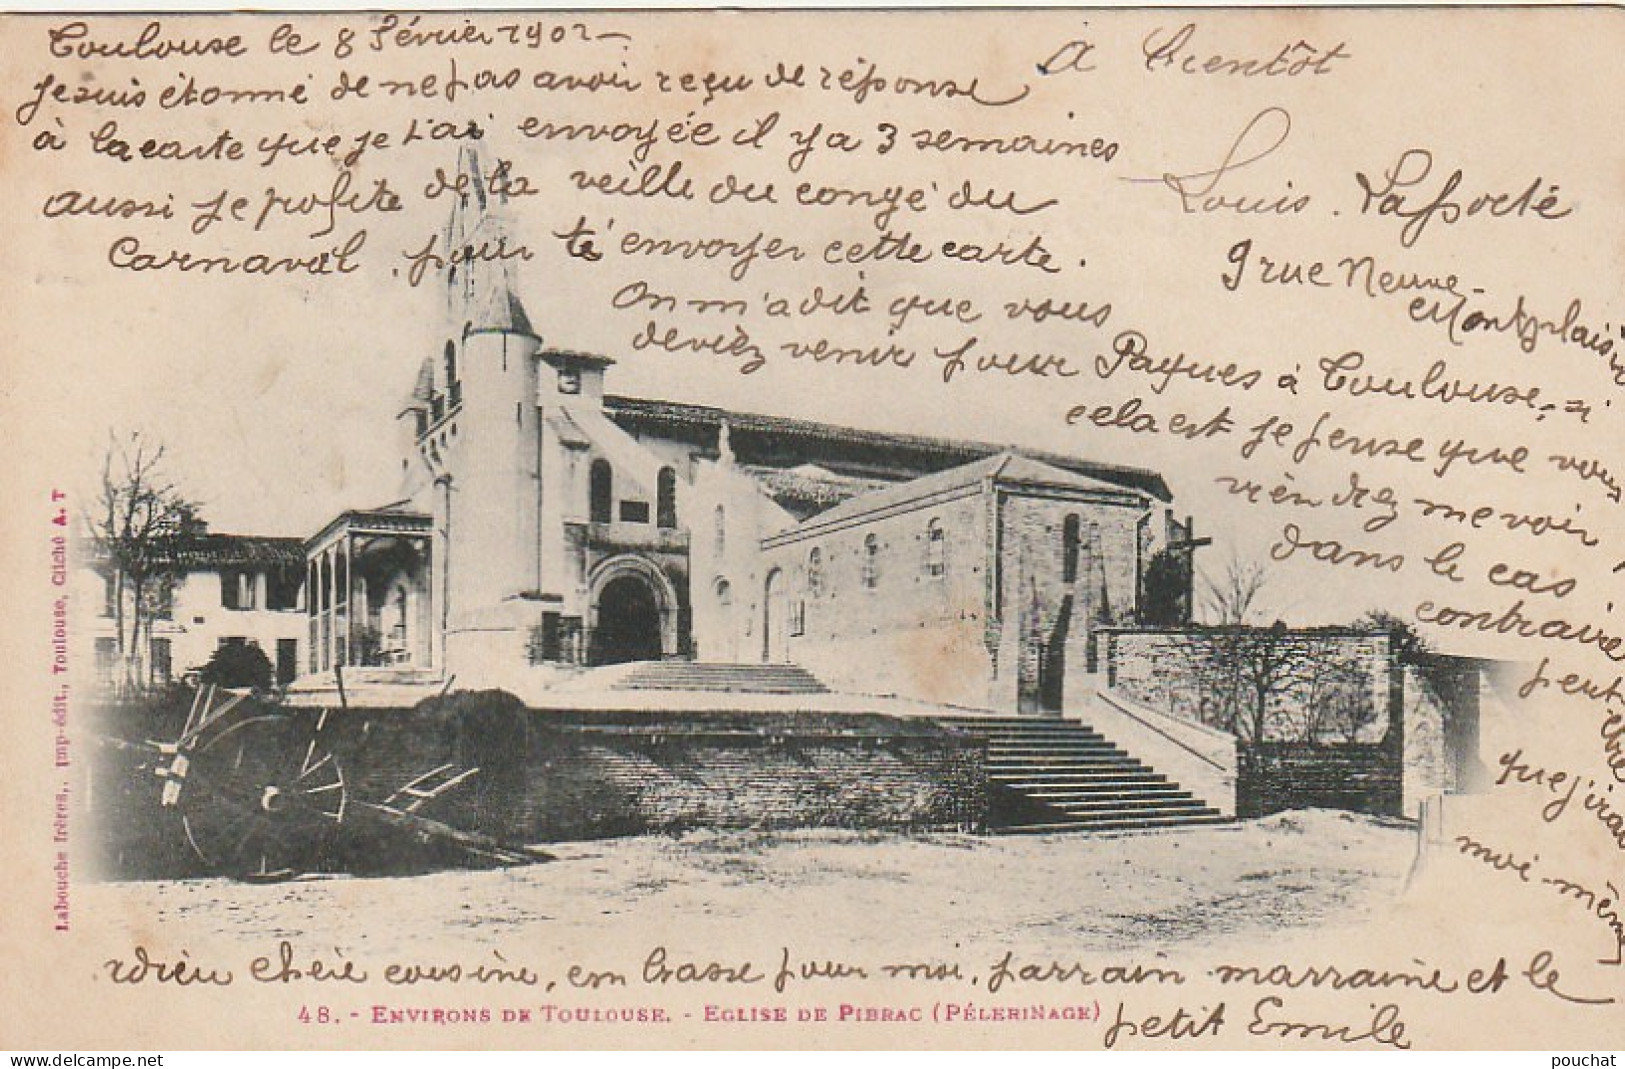 Toulouse le 8 Février 1902 -
Je suis étonné de ne pas avoir reçu de réponse
à la carte que je t'ai envoyée il y a 3 semaines
aussi je profite de la veille du congé du
Carnaval. pour te envoyer cette carte.
On m'a dit que vous
deviez venir pour Pâques à Toulouse, si
cela est je pense que vous
viendrez me voir
dans le cas
contraire
peut-être
que j'irai
moi-même
Adieu chère cousine, embrasse pour moi, parrain marraine et le
petit Emile
à bientôt
Louis. Lafforté
9 rue Neuve -
Montplaisir
Labouche frères, imp-édit., Toulouse, Cliché A. T
48. - ENVIRONS DE TOULOUSE. - EGLISE DE PIBRAC (PÉLERINAGE)
www.delcampe.net
pouchat